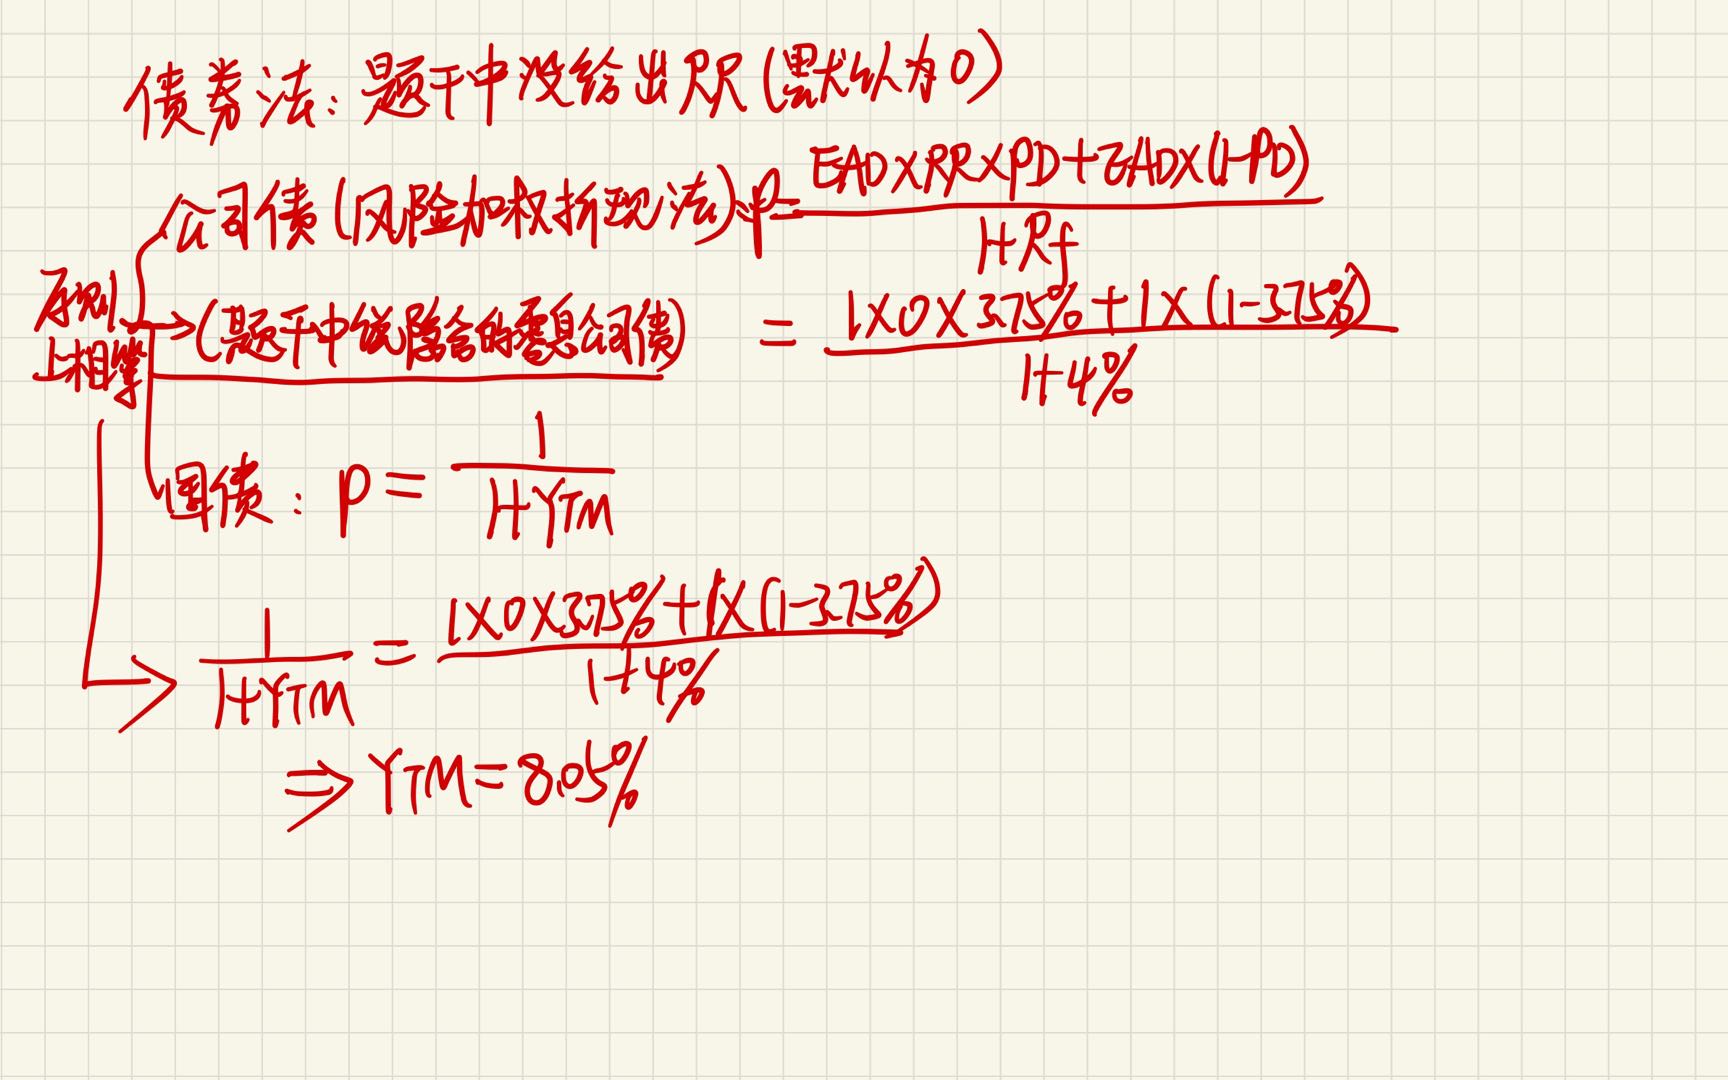 债券法：题干中没给出RR（默认为0）
公司债（风险加权折现法）P= EAD×RR×PD+EAD×(1-PD)
1+Rf
原则上相等
→（题干中说隐含的零息公司债）
= 1×0×3.75%+1×(1-3.75%)
1+4%
国债：P= 1
1+YTM
1
1+YTM
= 1×0×3.75%+1×(1-3.75%)
1+4%
⇒ YTM=8.05%